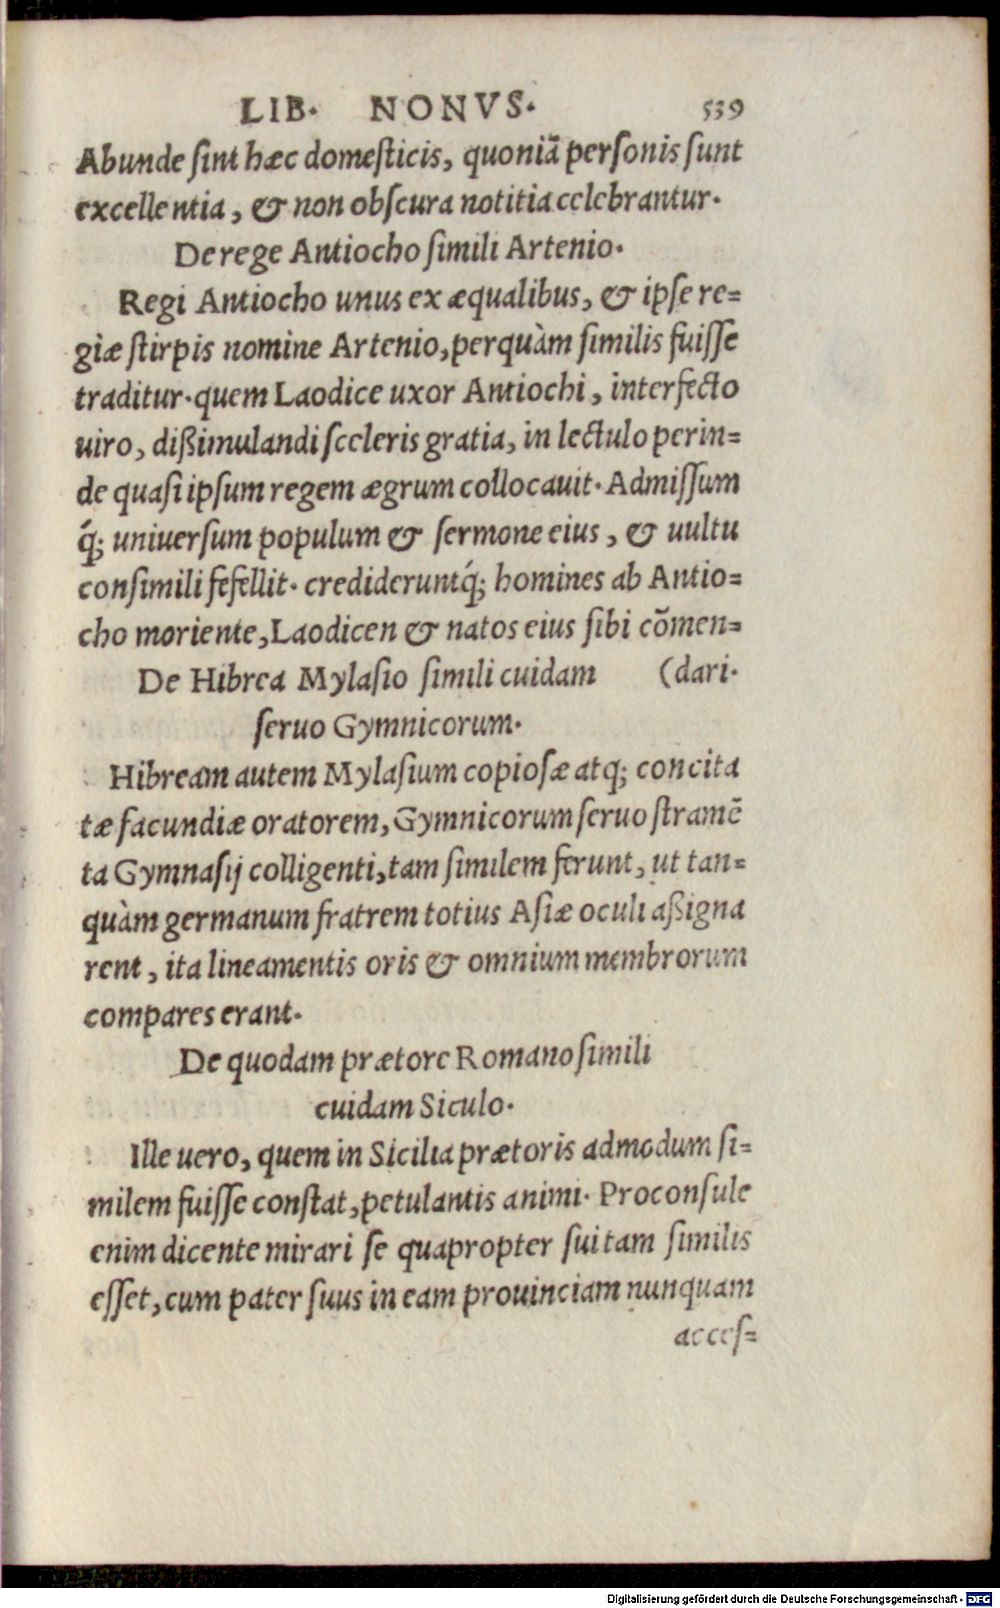 LIB. NONVS. 539
Abunde ſint hæc domeſticis, quoniã perſonis ſunt
excellentia, & non obſcura notitia celebrantur.
De rege Antiocho ſimili Artenio.
Regi Antiocho unus ex æqualibus, & ipſe re=
giæ ſtirpis nomine Artenio, perquàm ſimilis fuiſſe
traditur. quem Laodice uxor Antiochi, interfecto
uiro, dißimulandi ſceleris gratia, in lectulo perin=
de quaſi ipſum regem ægrum collocauit. Admiſſum
q́; uniuerſum populum & ſermone eius, & uultu
conſimili fefellit. credideruntq́; homines ab Antio=
cho moriente, Laodicen & natos eius ſibi cõmen=
De Hibrea Mylaſio ſimili cuidam (dari.
ſeruo Gymnicorum.
Hibream autem Mylaſium copioſæ atq; concita
tæ facundiæ oratorem, Gymnicorum ſeruo ſtramẽ
ta Gymnaſij colligenti, tam ſimilem ferunt, ut tan=
quàm germanum fratrem totius Aſiæ oculi aßigna
rent, ita lineamentis oris & omnium membrorum
compares erant.
De quodam prætore Romano ſimili
cuidam Siculo.
Ille uero, quem in Sicilia prætoris admodum ſi=
milem fuiſſe conſtat, petulantis animi. Proconſule
enim dicente mirari ſe quapropter ſui tam ſimilis
eſſet, cum pater ſuus in eam prouinciam nunquam
acceſ=
Digitalisierung gefördert durch die Deutsche Forschungsgemeinschaft - DFG